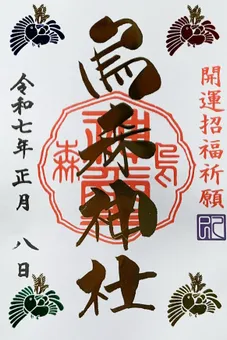 開運招福祈願
烏森神社
烏森
令和七年正月八日